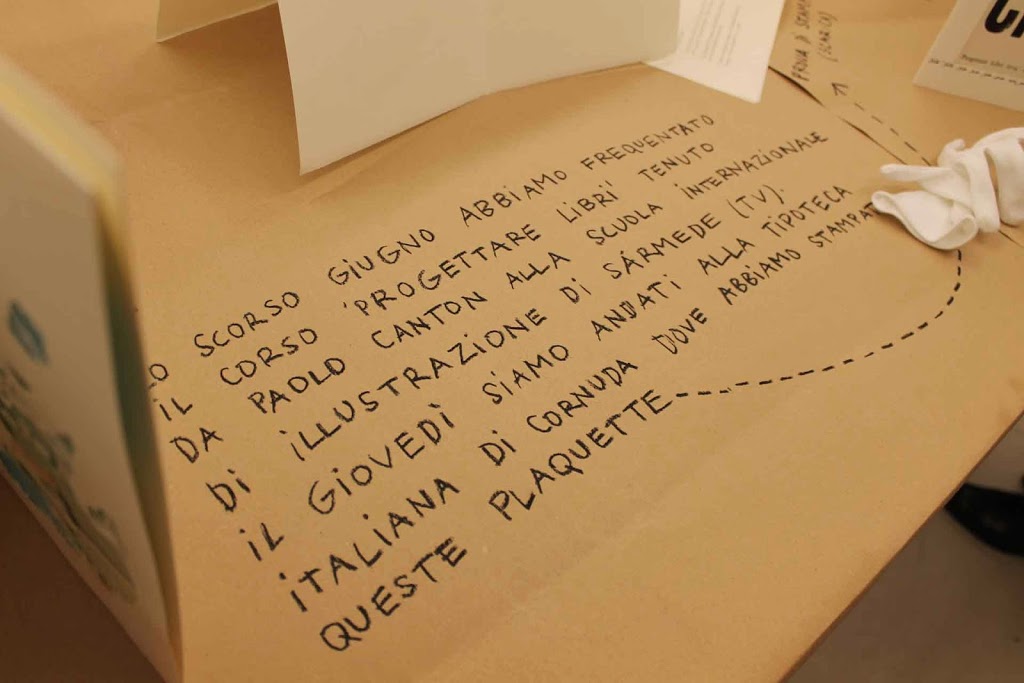 LO SCORSO GIUGNO ABBIAMO FREQUENTATO
IL CORSO 'PROGETTARE LIBRI' TENUTO
DA PAOLO CANTON ALLA SCUOLA INTERNAZIONALE
DI ILLUSTRAZIONE DI SÁRMEDE (TV).
IL GIOVEDÌ SIAMO ANDATI ALLA TIPOTECA
ITALIANA DI CORNUDA DOVE ABBIAMO STAMPAT
QUESTE PLAQUETTE